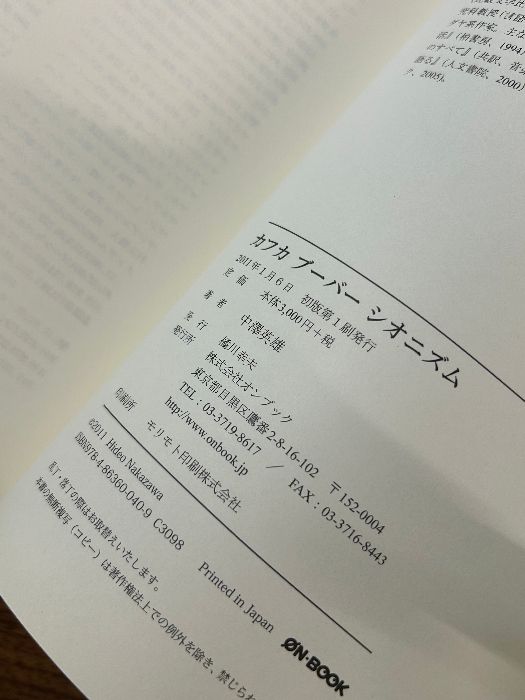 児科教授（清
ダヤ系作家、主な
訴』（柏書房、1994）
のすべて』（共訳、青土
語る』（人文書院、2000）
ク、2005）。
カフカ ブーバー シオニズム
2011年1月6日　初版第1刷発行
定価　本体3,000円＋税
著者　中澤英雄
発行　橘川幸夫
発行所　株式会社オンブック
東京都目黒区鷹番2-8-16-102　〒152-0004
TEL：03-3719-8617　／　FAX：03-3716-8443
http://www.onbook.jp
印刷所　モリモト印刷株式会社
©2011 Hideo Nakazawa　Printed in Japan
ISBN978-4-86360-040-9 C3098　ØN-BOOK
乱丁・落丁の際はお取替えいたします。
本書の無断複写（コピー）は著作権法上での例外を除き、禁じられ